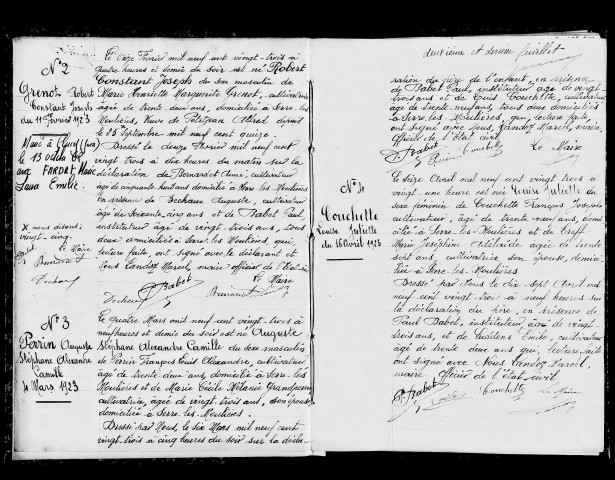 N° 2
Grenot Robert
Constant Joseph
du 11 Février 1923
Marié à
le 13 octobre
avec
Emilie
x nous disons:
vingt-cinq.
Le Maire
Le onze Février mil neuf cent vingt-trois à
quatre heures et demie du soir est né Robert
Constant Joseph du sexe masculin de
Marie Henriette Marguerite Grenot, cultivatrice
âgée de trente deux ans, domiciliée à Serre-les-
Moulières, Veuve de Petitjean Alfred depuis
le 25 Septembre mil neuf cent quinze.
Dressé le douze Février mil neuf cent
vingt trois à dix heures du matin sur la
déclaration de Bernardet Aimé, cultivateur
âgé de cinquante huit ans domicilié à Serre les Moulières
en présence de Dechaux Auguste, cultivateur
âgé de soixante cinq ans et de Babet Paul,
instituteur âgé de vingt trois ans, tous
deux domiciliés à Serre-les-Moulières, qui,
lecture faite, ont signé avec le déclarant et
Nous Landoz Marcel, maire, officier de l'Etat civil
Le Maire
Babet
N° 3
Perrin Auguste
Stéphane Alexandre
Camille
4 Mars 1923
Le quatre Mars mil neuf cent vingt-trois, à
neuf heures et demie du soir est né Auguste
Stéphane Alexandre Camille du sexe masculin
de Perrin François Louis Alexandre, cultivateur
âgé de trente deux ans, domicilié à Serre-les-
Moulières et de Marie Cécile Mélanie Grandperrin
cultivatrice, âgée de vingt trois ans, son épouse
domiciliée à Serre-les-Moulières.
Dressé par Nous, le six Mars mil neuf cent
vingt-trois à cinq heures du soir sur la décla-
deuxième et dernier feuillet
ration du père de l'enfant, en présence
de Babet Paul, instituteur âgé de vingt
trois ans et de Louis Couchette, cultivateur
âgé de trente neuf ans, tous deux domiciliés
à Serre les Moulières, qui, lecture faite,
ont signé avec Nous, Landoz Marcel, maire,
Officier de l'état civil
Le Maire
P. Babet Perrin Couchette
N° 4
Couchette
Louise Juliette
du 16 Avril 1923
Le seize Avril mil neuf cent vingt trois à
vingt une heure est née Louise Juliette du
sexe féminin de Couchette François Joseph
cultivateur, âgé de trente neuf ans, domi-
cilié à Serre-les-Moulières et de
Marie Joséphine Adélaïde âgée de trente
sept ans, cultivatrice son épouse, domici-
liée à Serre-les-Moulières
Dressé par Nous le dix-sept Avril mil
neuf cent vingt trois à neuf heures sur
la déclaration du père, en présence de
Paul Babet, instituteur âgé de vingt-
trois ans, et de Emile, cultivateur
âgé de trente deux ans qui, lecture faite
ont signé avec Nous Landoz Marcel
maire Officier de l'état-civil
P. Babet Couchette Le Maire